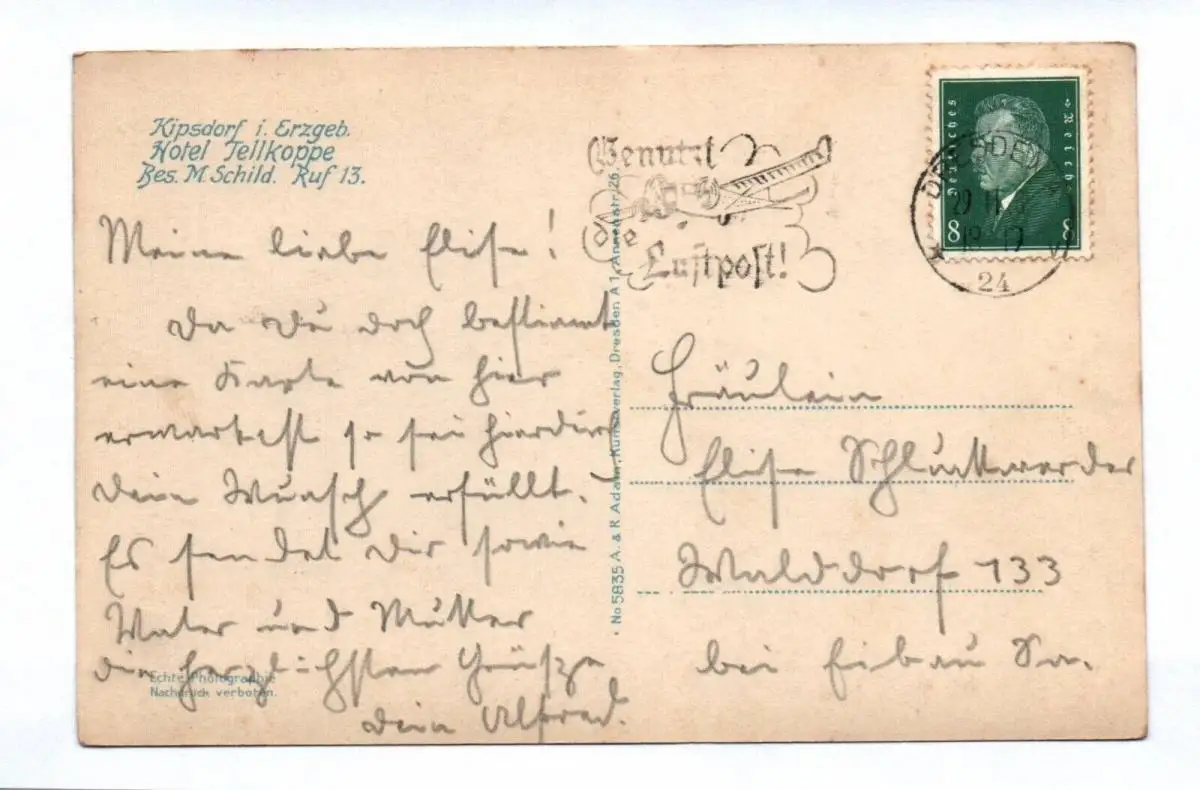 Kipsdorf i. Erzgeb.
Hotel Tellkoppe
Bes. M. Schild. Ruf 13.
Meine liebe Elise!
Da Du doch bestimmt
eine Karte von hier
erwartest so sei hierdurch
Dein Wunsch erfüllt.
Es sendet Dir sowie
Vater und Mutter
die herzlichsten Grüße
Dein Alfred.
Echte Photographie
Nachdruck verboten.
• No 5835 A. & R. Adam, Kunstverlag, Dresden A 1, Annenstr. 26.
Benutzt
die
Luftpost!
Deutsches Reich
8 8
DRESDEN
24
Fräulein
Elise
Walddorf 133
bei Eibau Sa.